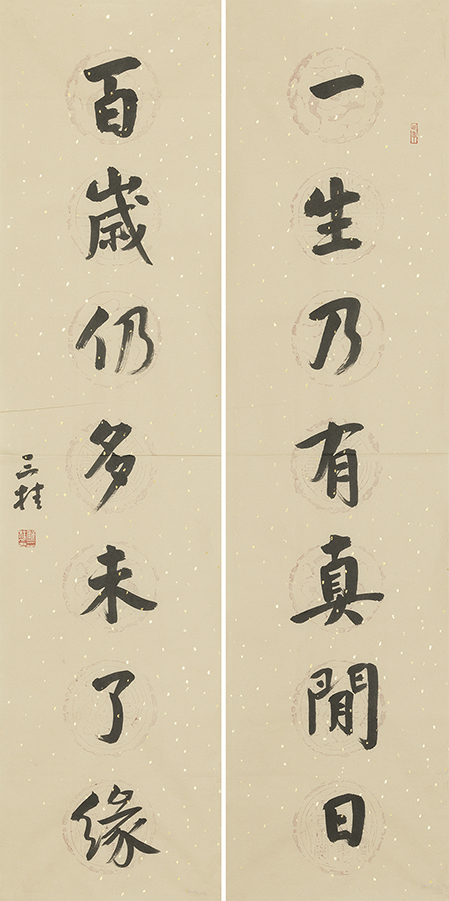 一生乃有真閒日
百歲仍多未了緣
三桂